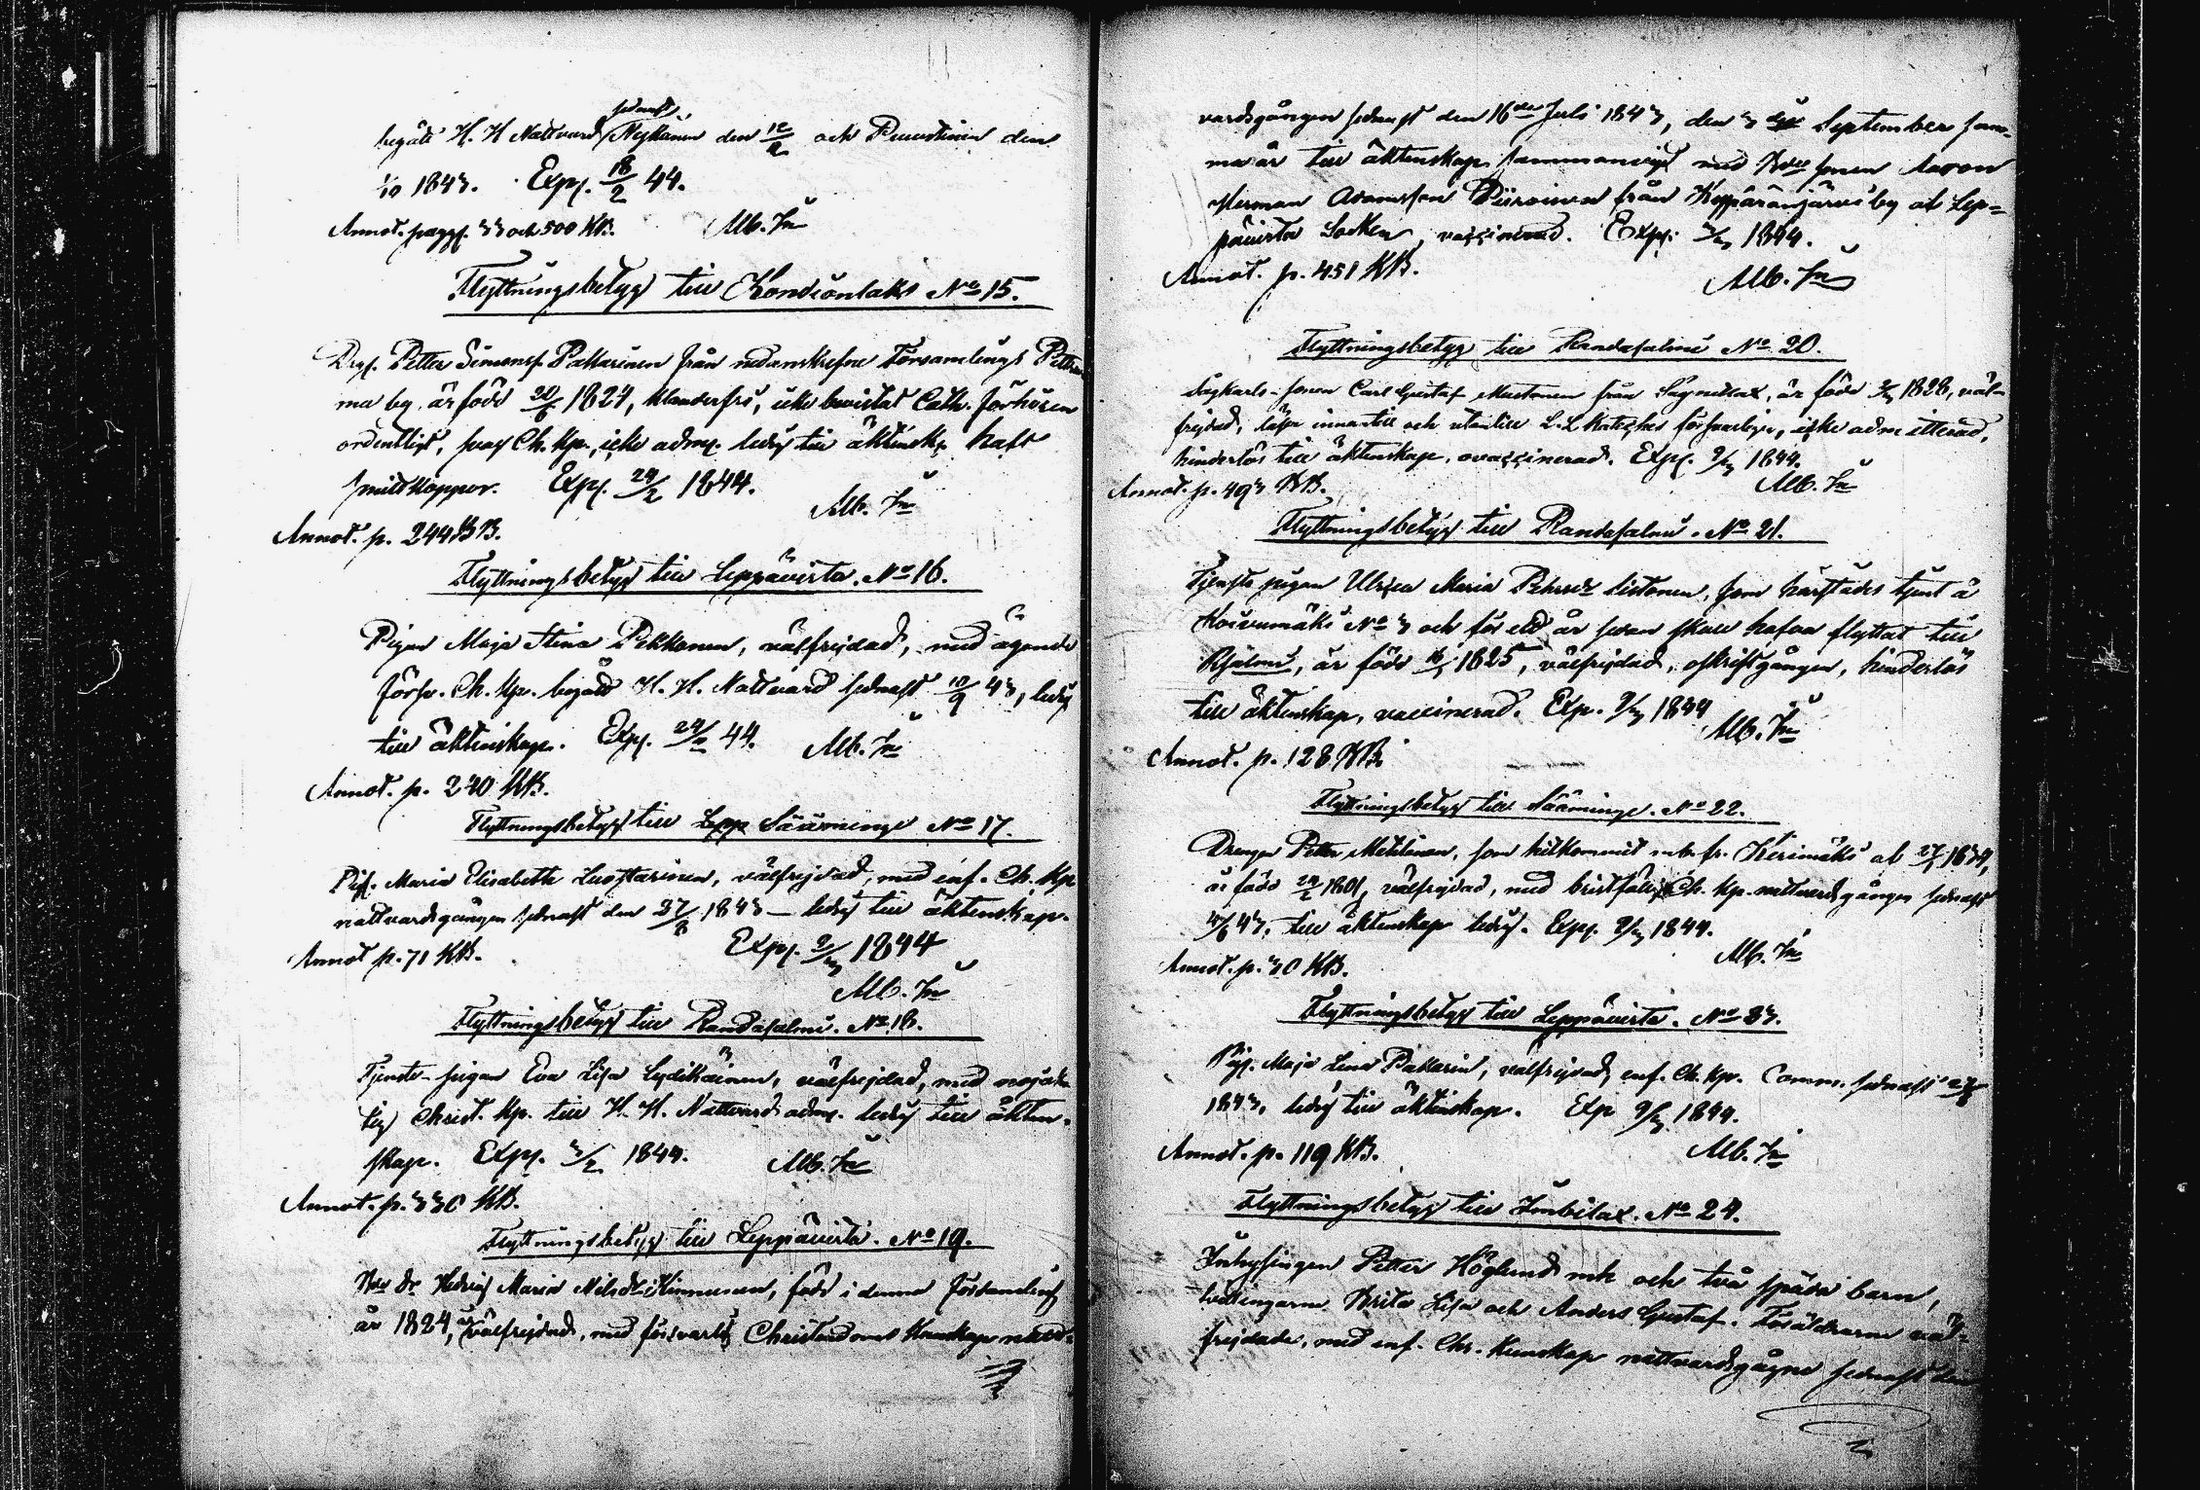 sednast
begått H. H. Nattvard Nykänen den 12/2 och Puustinen den
1/10 1843. Exp. 18/2 44.
Annot. pagg. 33 och 500 KB. Alb. Fn
Flyttningsbetyg till Kondiontaks No 15.
Drg. Petter Simonss. Pakarinen från nedanskrefne Församlings
ma by, är född 1824, klanderfri, icke bevistat Cath. förhören
ordentligt, svag Ch. Kp., icke adm. ledig till äktensk. haft
smittkoppor. Exp. 24/2 1844. Alb. Fn
Annot. p. 244 KB.
Flyttningsbetyg till Leppävirta. No 16.
Pigan Maja Stina Pekkonen, välfrejdad, med ägande
förfr. Ch. Kp. begått H. H. Nattvard sednast 10/9 43, ledig
till äktenskap. Exp. 24/2 44. Alb. Fn
Annot. p. 240 KB.
Flyttningsbetyg till Lepp Sääminge No 17.
Pig. Maria Elisabeth Luostarinen, välfrejdad, med enf. Ch. Kp
nattvardsgången sednast den 27/8 1843 – ledig till äktenskap.
Annot p. 71 KB. Exp. 2/3 1844
Alb. Fn
Flyttningsbetyg till Randasalmi. No 18.
Tjenste-pigan Eva Lisa Lydikäinen, välfrejdad, med nojakt-
lig Christ. Kp. till H. H. Nattvard adm. ledig till äkten-
skap. Exp. 3/2 1844. Alb. Fn
Annot. p. 330 KB.
Flyttningsbetyg till Leppävirta. No 19.
Bde Dr Hedvig Maria Nilsdr Kinnunen, född i denna Församling
år 1824, är välfrejdad, med försvarlig Christendoms Kunskap natt-
vardsgången sednast den 16de Juli 1843, den 3 dje September sam-
ma år till äktenskap sammanvigd med Bde Sonen Aaron
Herman Adamsson Piiroinen från Koppäränjärvi by af Lep-
pävirta Socken, vaccinerad. Exp. 2/3 1844.
Annot. p. 451 KB. Alb. Fn
Flyttningsbetyg till Randasalmi No 20.
Sågkarls-sonen Carl Gustaf Mustonen från Sägnilax, är född 1828, väl-
frejdad, läser innantill och utantill L. L. Kateches försvarligt, icke admitterad,
hinderlös till äktenskap, ovaccinerad. Exp. 9/3 1844.
Annot. p. 493 KB. Alb. Fn
Flyttningsbetyg till Randasalmi. No 21.
Tjenste pigan Ulrica Maria Pehrsdr Sistonen, som härstädes tjent å
Koivumäki No 3 och för ett år sedan skall hafva flyttat till
Rsalmi, är född 1825, välfrejdad, oskriftgången, hinderlös
till äktenskap, vaccinerad. Exp. 9/3 1844
Alb. Fn
Annot. p. 128 KB.
Flyttningsbetyg till Sääminge. No 22.
Drengen Petter Mehtonen, som hitkommit m. b. fr. Kerimäki af 27/ 1834,
är född 24/2 1801, välfrejdad, med bristfällig Ch. Kp. nattvardsgången sednast
4/6 43, till äktenskap ledig. Exp. 9/3 1844.
Alb. Fn
Annot. p. 30 KB.
Flyttningsbetyg till Leppävirta. No 23.
Pig. Maja Lena Pakarin, välfrejdad, enf. Ch. Kp. Comm. sednast
1843, ledig till äktenskap. Exp 9/3 1844.
Annot. p. 119 KB. Alb. Fn
Flyttningsbetyg till Imbilax. No 24.
Inhysingen Petter Höglund mh och två späda barn,
tvillingarne Brita Lisa och Anders Gustaf. Föräldrarne väl-
frejdade, med enf. Chr. Kunskap nattvardsgågne sednast den